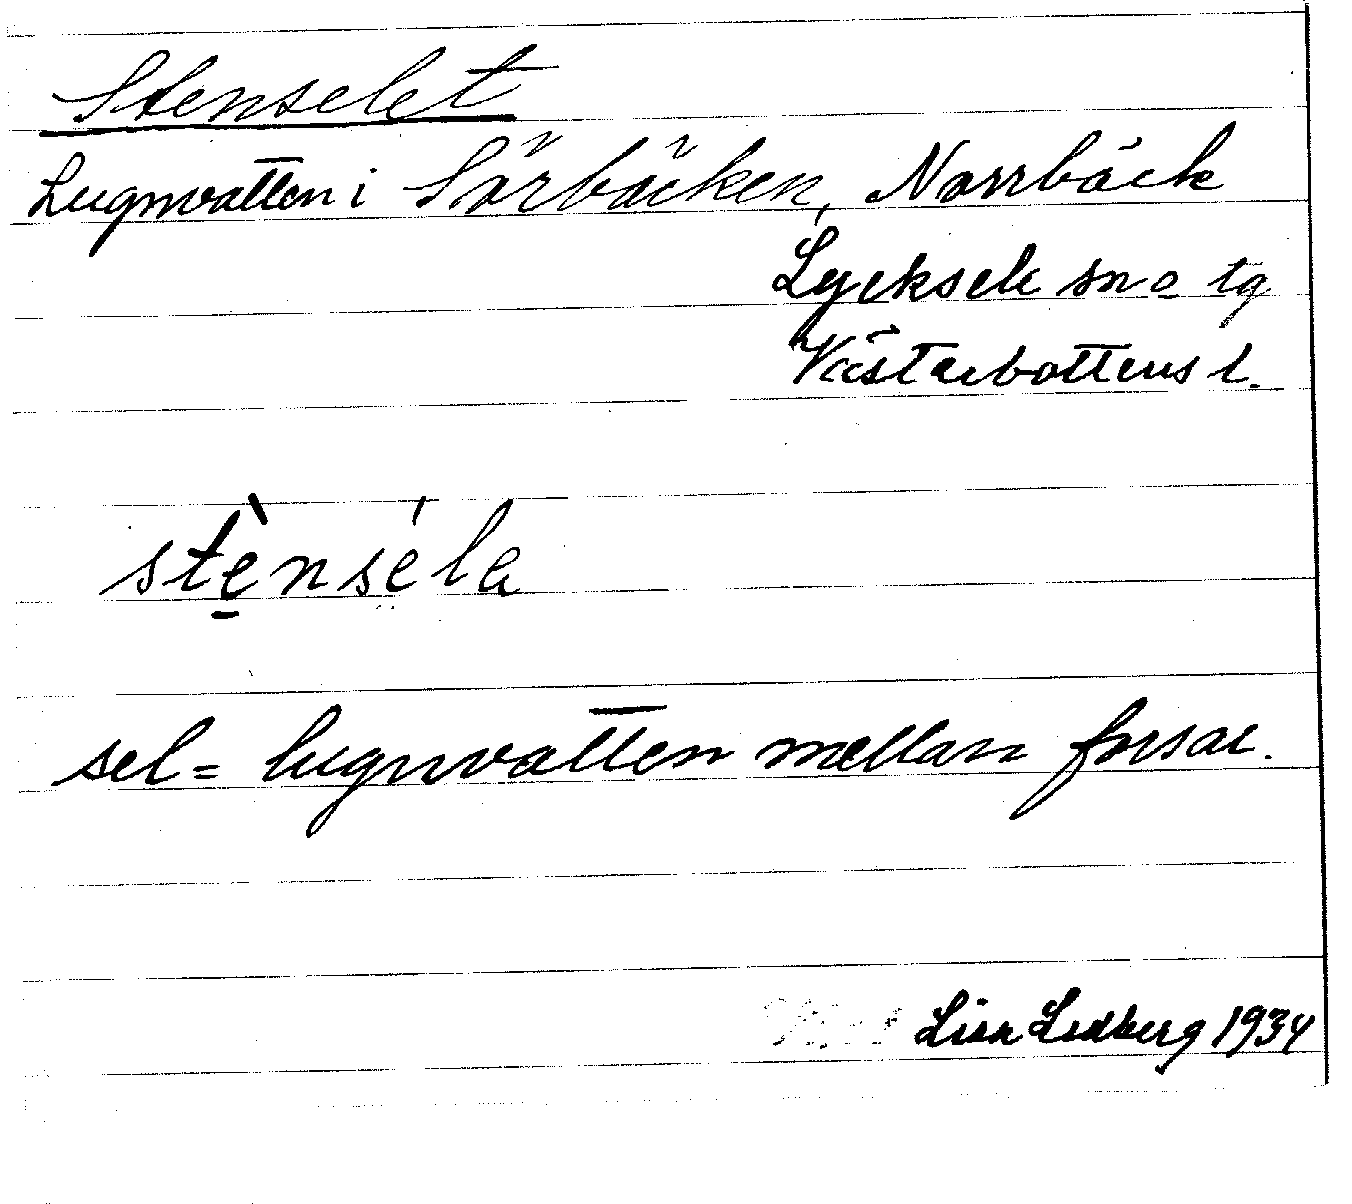 Stenselet
Lugnvatten i Sörbäcken, Norrbäck
Lycksele sn o tg
Västerbottens l.
stènséla
sel = lugnvatten mellan forsar.
Lisa Lidberg 1934